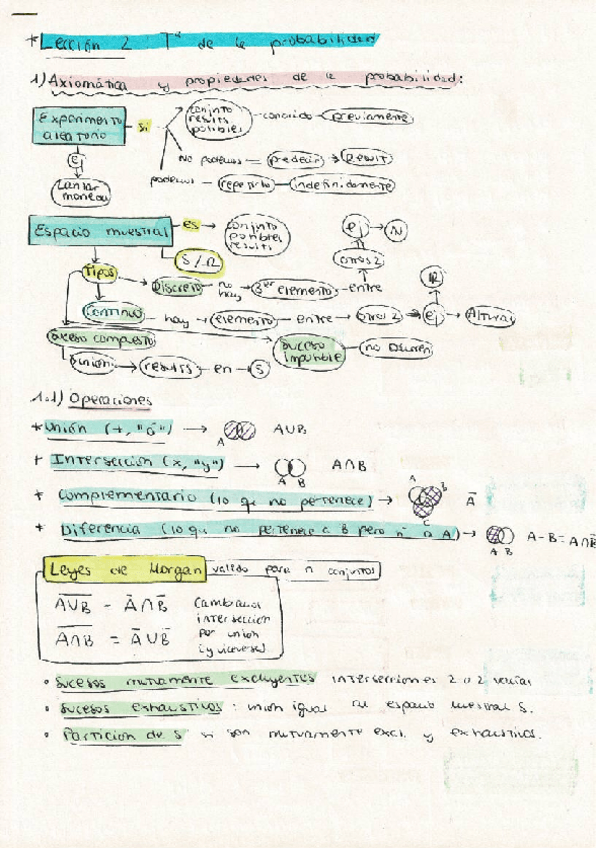 * Lección 2 Tª de la probabilidad
1) Axiomática y propiedades de la probabilidad:
Experimento aleatorio si conjunto results posibles conocido previamente
No podemos predecir result
podemos repetirlo indefinidamente
ej
Lanzar moneda
Espacio muestral es conjunto posibles results
S/Ω
Tipos
Discreto no hay 3er elemento entre otros 2 ej N
Continuo hay elemento entre otros 2 ej Altura
R
suceso compuesto
unión results en S
suceso imposible no ocurren
1.1) Operaciones
* Unión (+, "ó") → A A∪B
+ Intersección (x, "y") → A B A∩B
* Complementario (lo que no pertenece) → A B C Ā
* Diferencia (lo que no pertenece a B pero sí a A) → A B A-B = A∩B̅
Leyes de Morgan valido para n conjuntos
A̅∪̅B̅ = Ā∩B̅
A̅∩̅B̅ = Ā∪B̅
Cambiamos
intersección
por unión
(y viceversa)
• Sucesos mutuamente excluyentes intersecciones 2 a 2 vacías
• Sucesos exhaustivos: unión igual al espacio muestral S.
• Partición de S si son mutuamente excl. y exhaustivos.